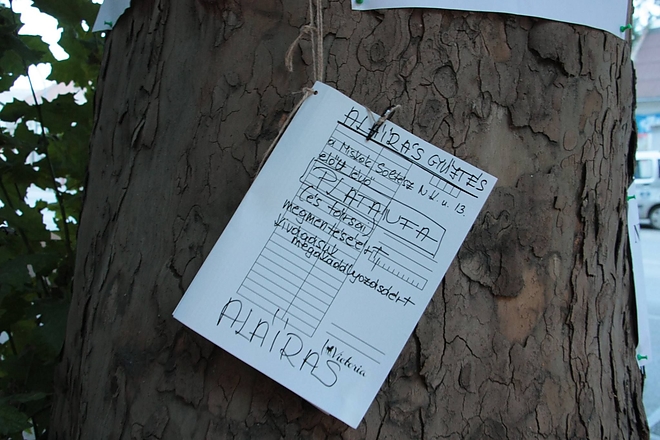 ALÁÍRÁS GYŰJTÉS
a Miskolc Soltész N. K. u. 13.
előtt lévő
PLATÁNFA
(és társai)
megmentéséért
kivágásuk
megakadályozásáért
ALÁÍRÁS
Victoria